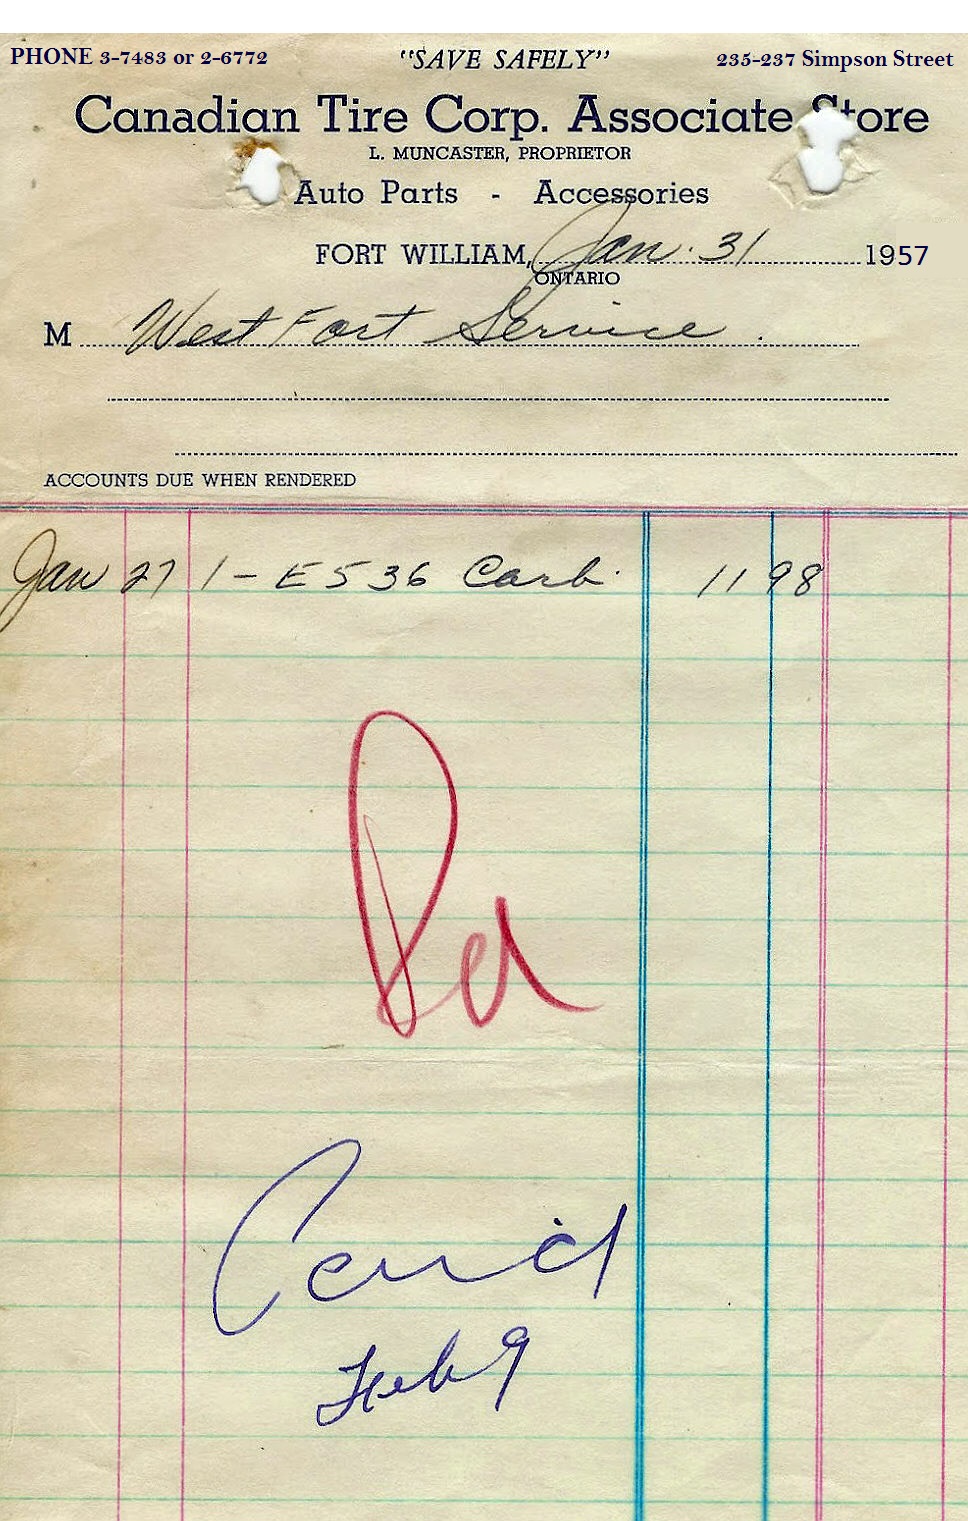 PHONE 3-7483 or 2-6772 "SAVE SAFELY" 235-237 Simpson Street
Canadian Tire Corp. Associate Store
L. MUNCASTER, PROPRIETOR
Auto Parts - Accessories
FORT WILLIAM, Jan. 31 1957
ONTARIO
M West Fort Service.
ACCOUNTS DUE WHEN RENDERED
Jan 27 1 - E536 Carb. 11 98
Pd
Feb 9